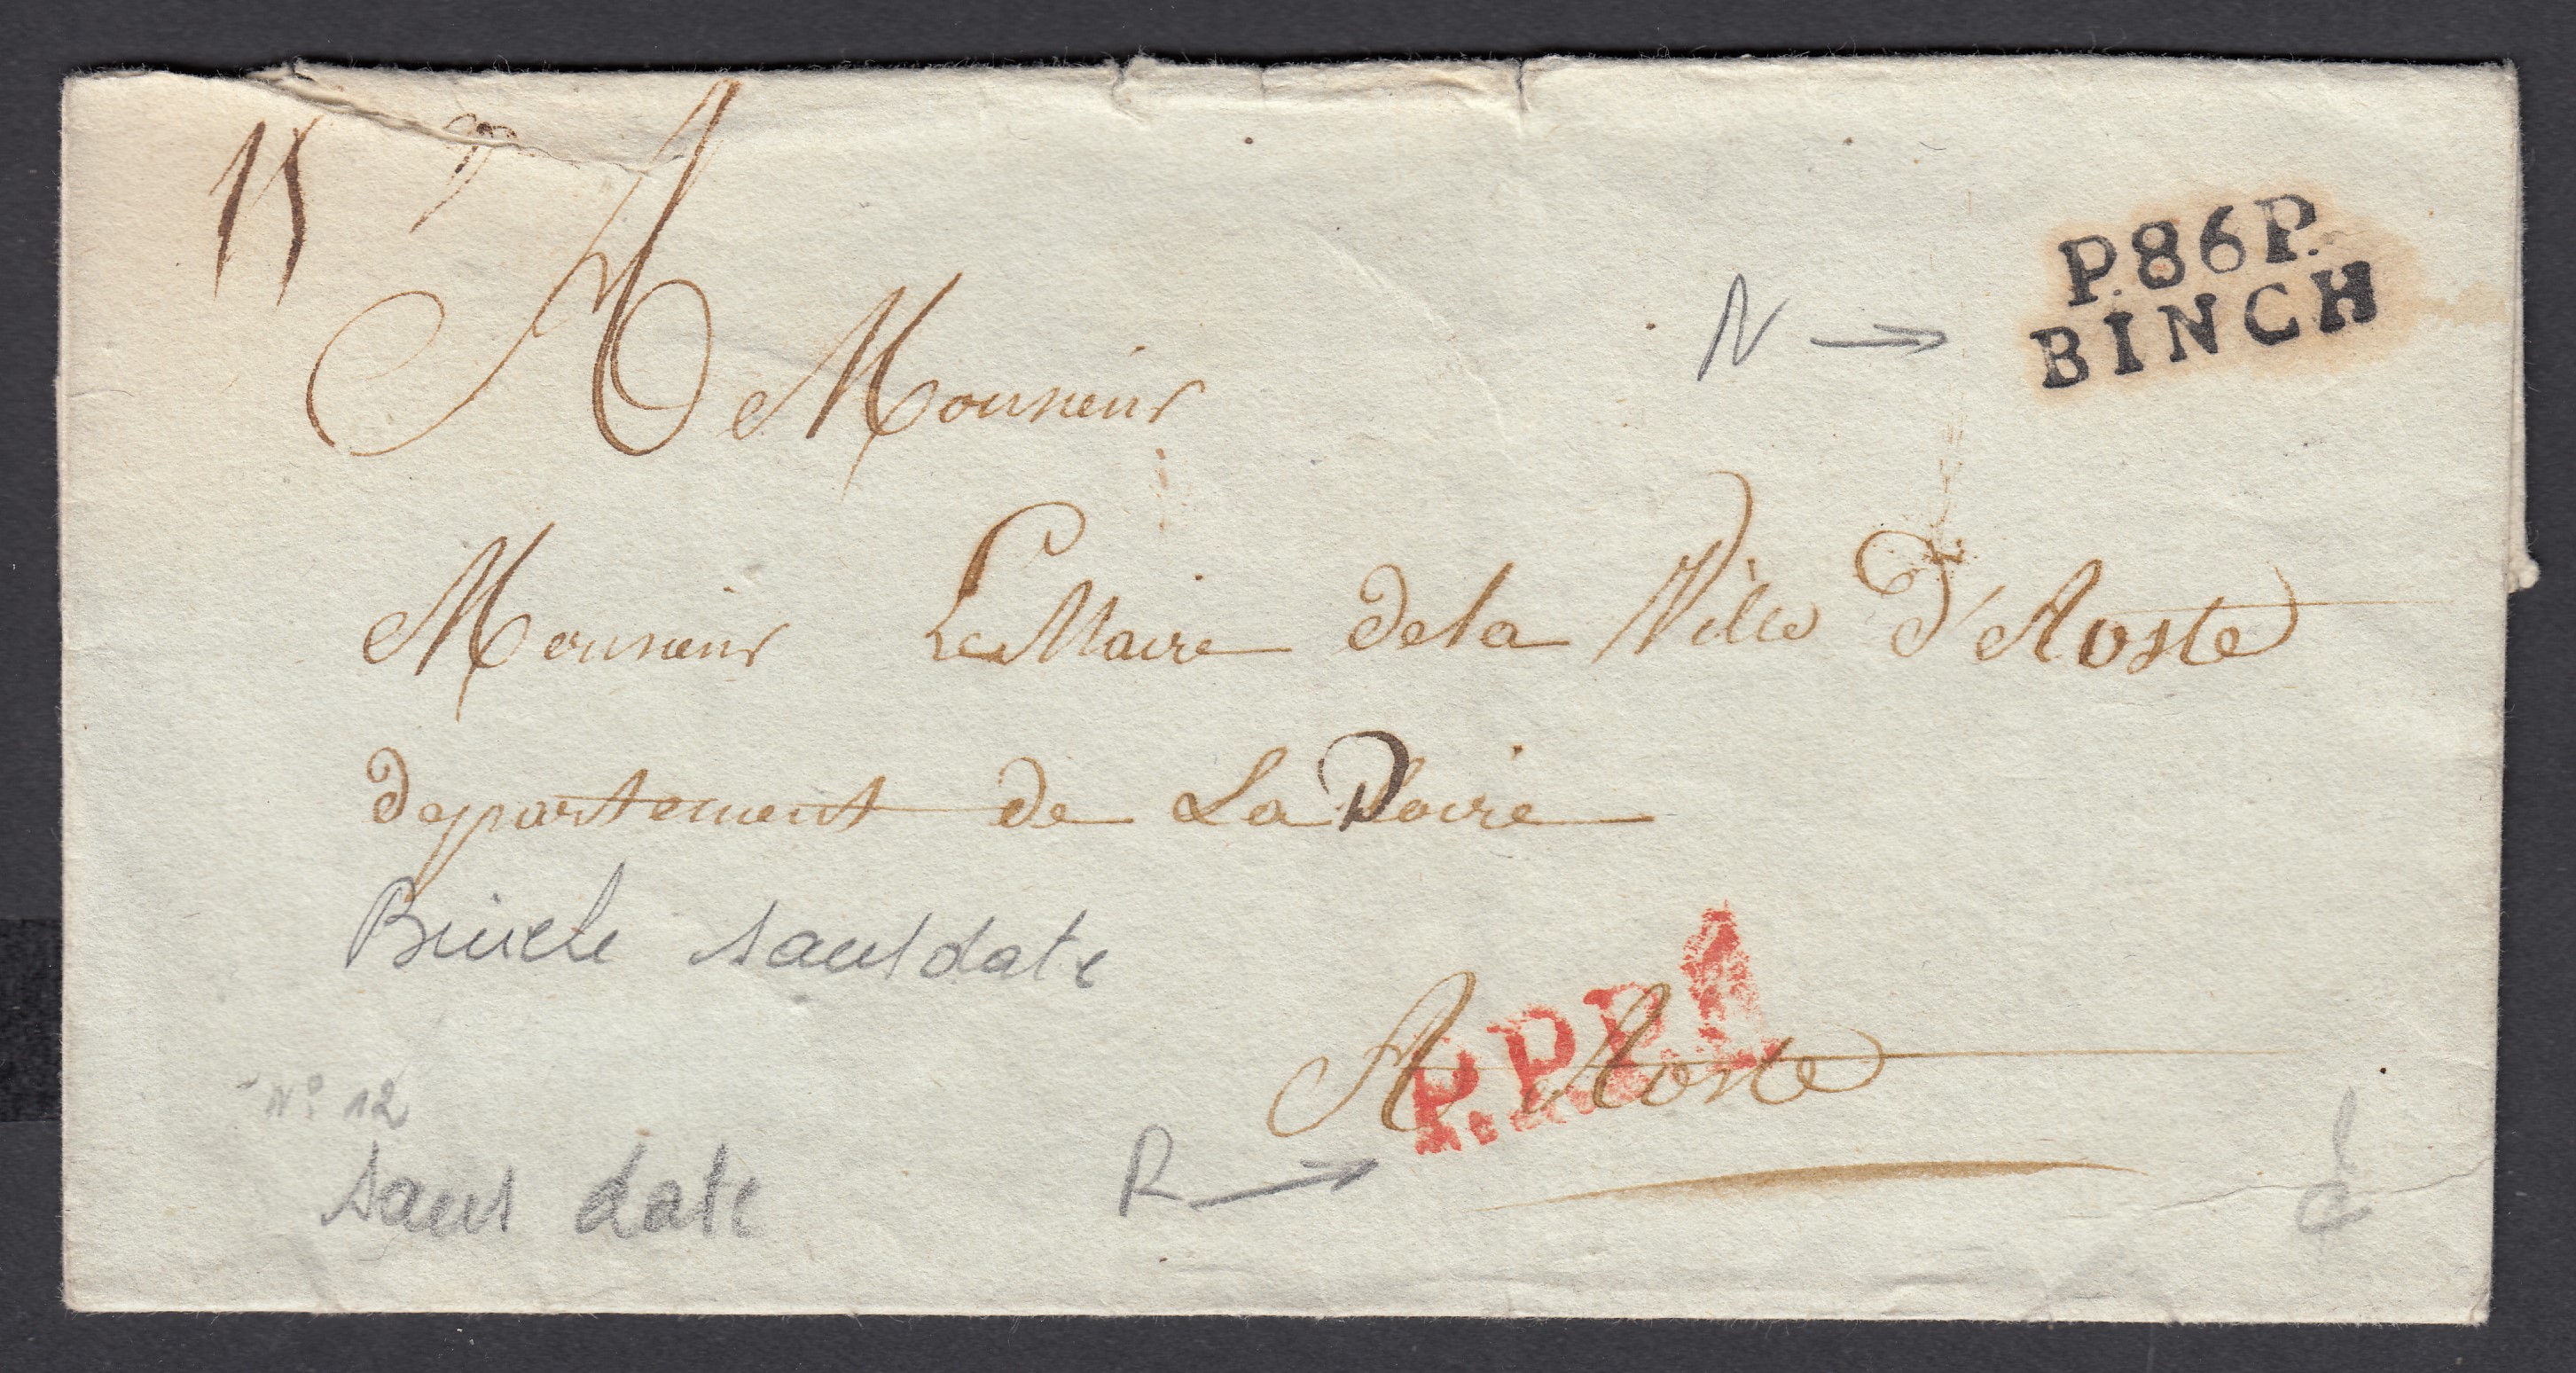 11
P.86P.
BINCH
N →
A Monsieur
Monsieur Le Maire de la Ville d'Aoste
departement de La Doire
Binche sans date
P.P.P.P.
A Aoste
N° 12
R →
sans date